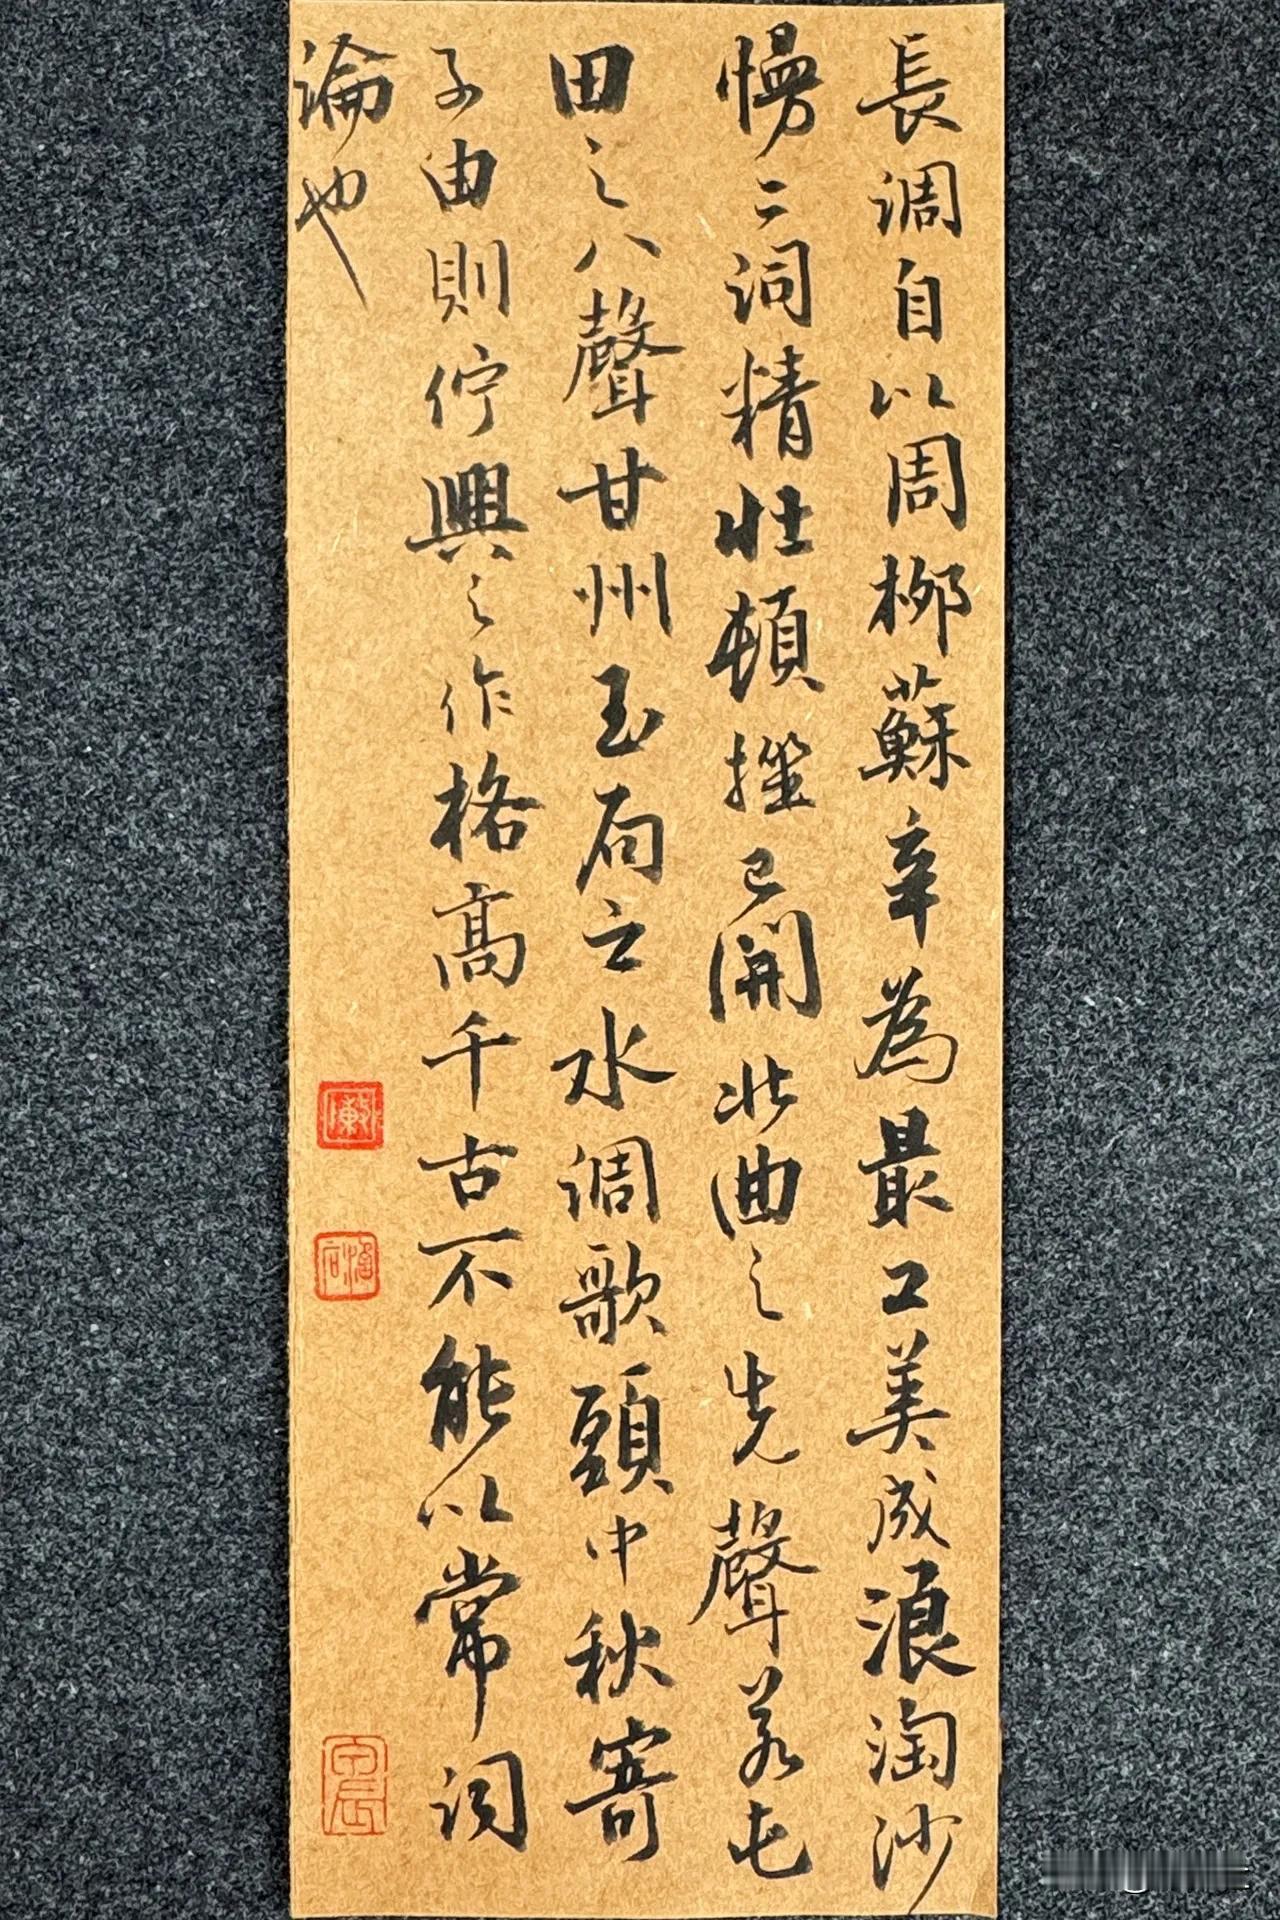 長調自以周柳蘇辛為最工美成浪淘沙
慢二詞精壯頓挫已開北曲之先聲若屯
田之八聲甘州玉局之水調歌頭中秋寄
子由則佇興之作格高千古不能以常词
論也